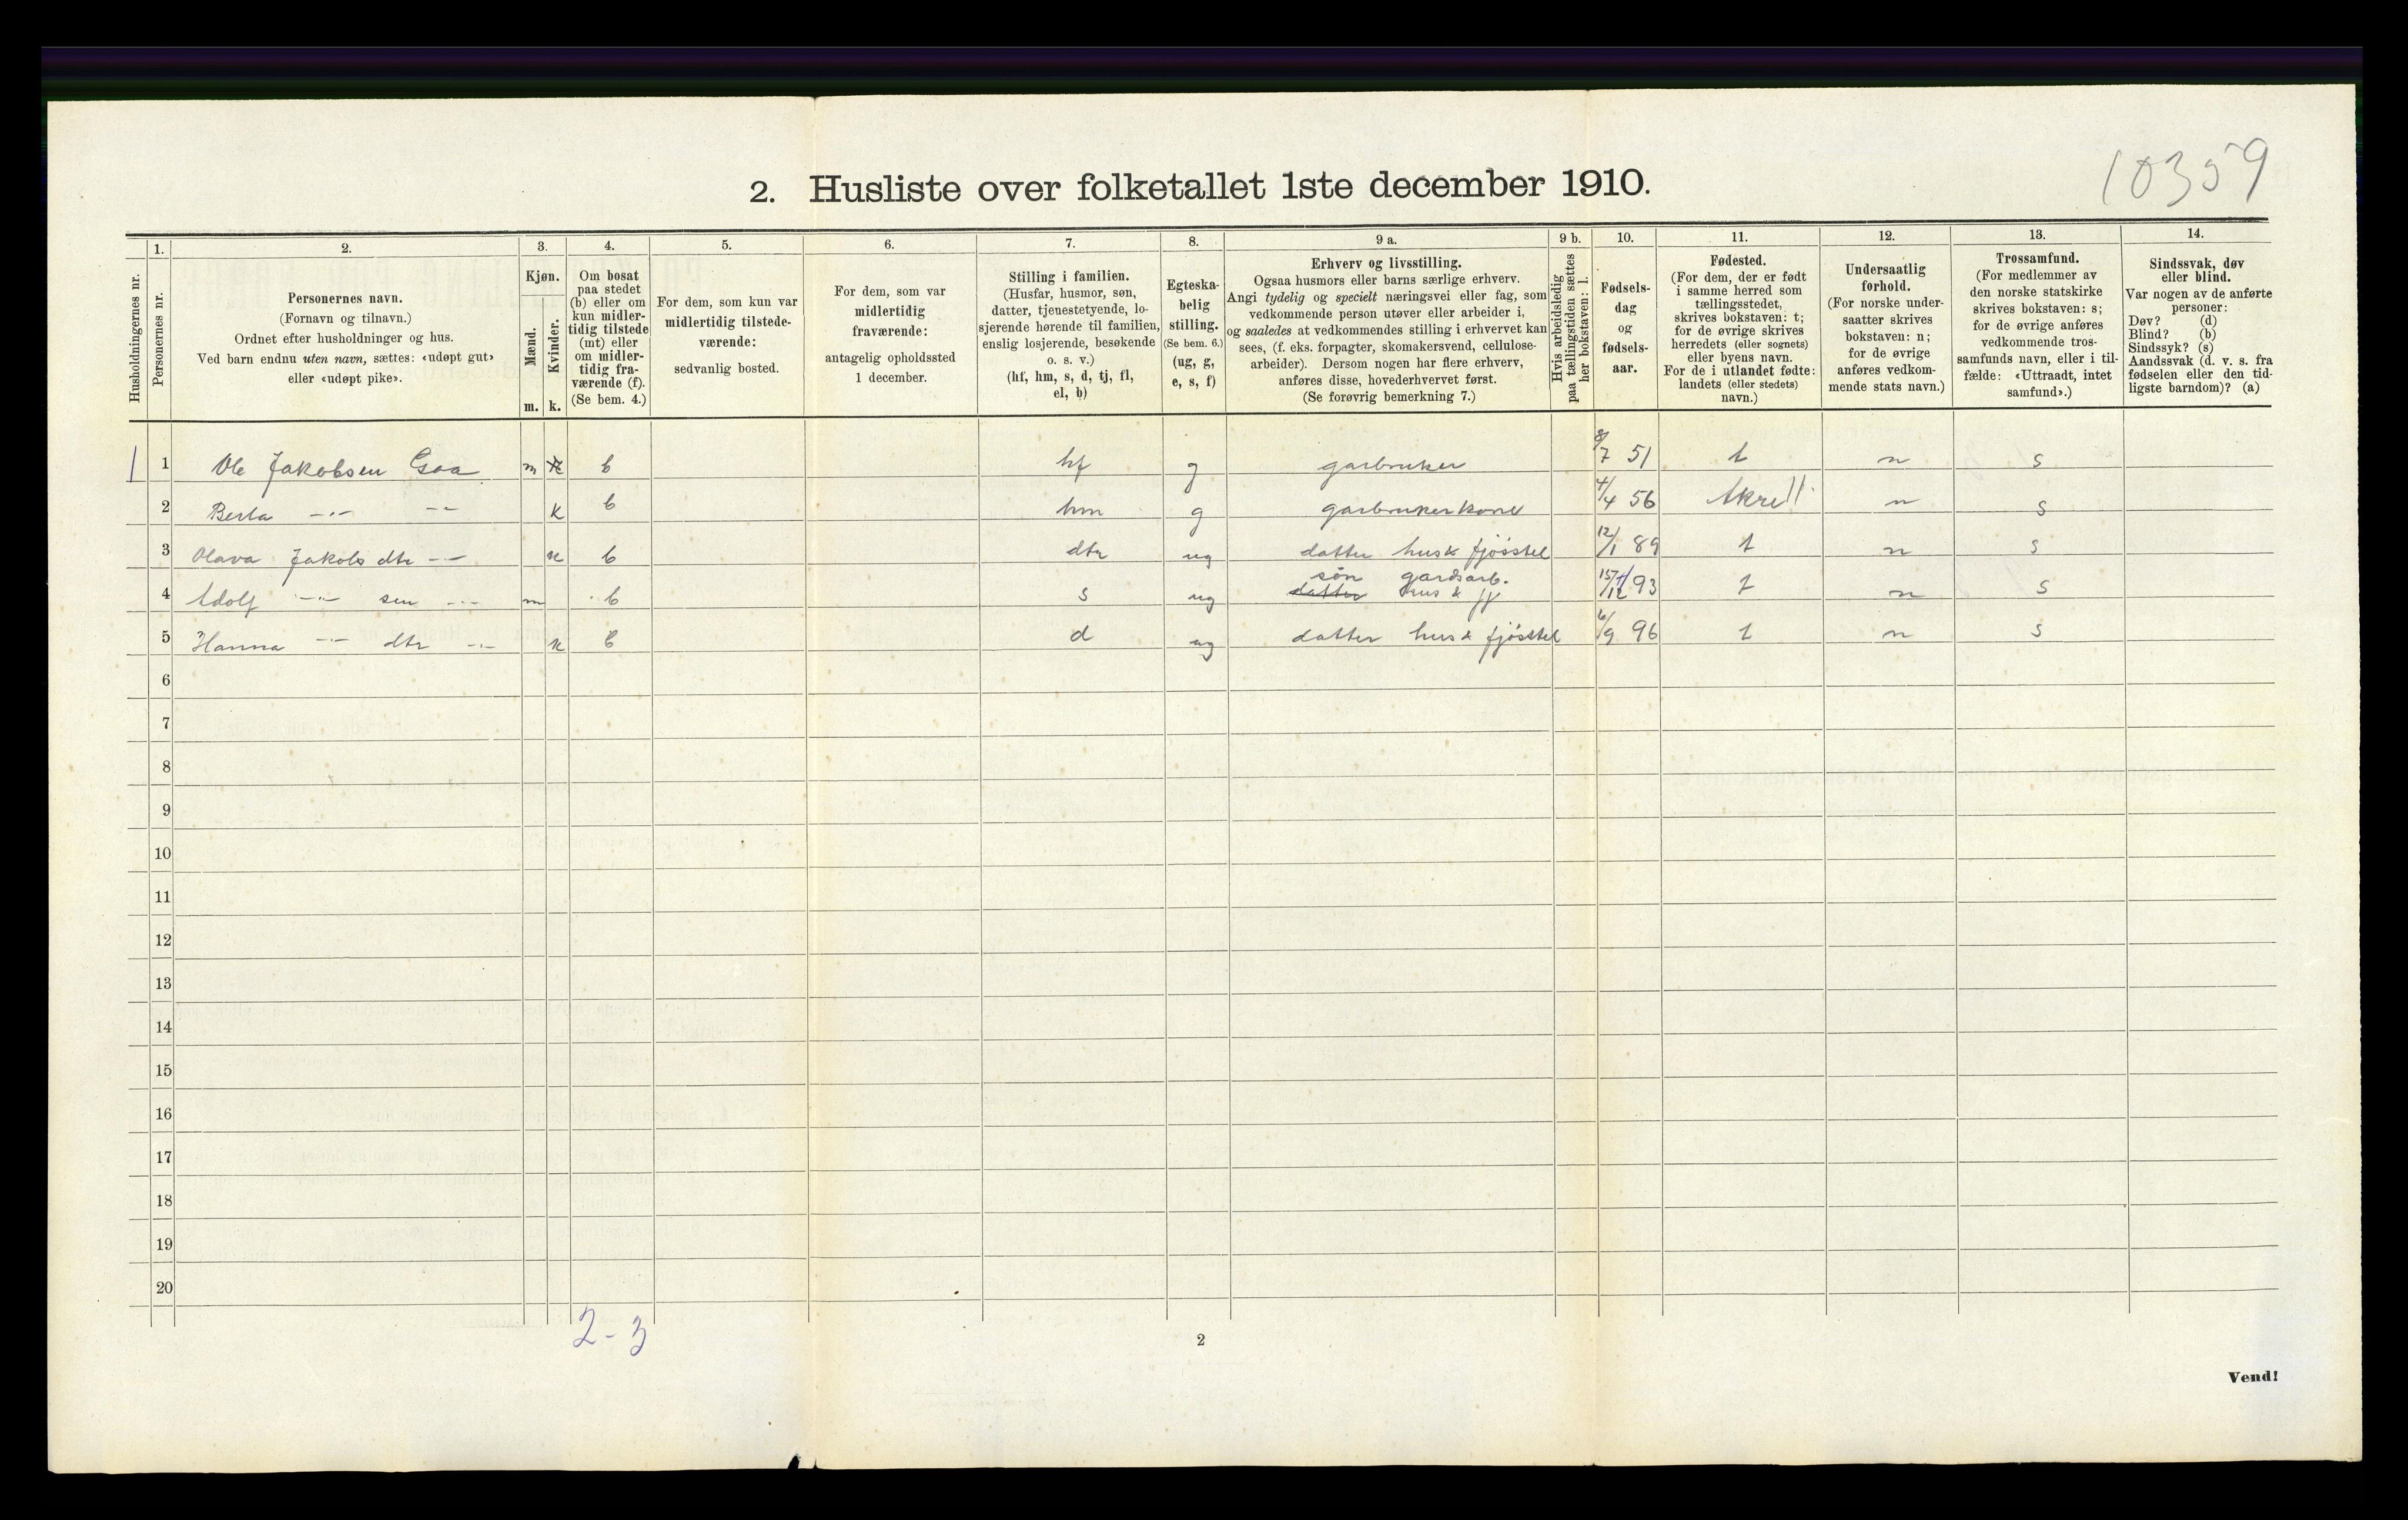 10359
2. Husliste over folketallet 1ste december 1910.
1. 2. 3. 4. 5. 6. 7. 8. 9 a. 9 b. 10. 11. 12. 13. 14.
Husholdningernes nr.
Personernes nr.
Personernes navn.
(Fornavn og tilnavn.)
Ordnet efter husholdninger og hus.
Ved barn endnu uten navn, sættes: «udøpt gut»
eller «udøpt pike».
Kjøn.
Mænd.
Kvinder.
m. k.
Om bosat
paa stedet
(b) eller om
kun midler-
tidig tilstede
(mt) eller
om midler-
tidig fra-
værende (f).
(Se bem. 4.)
For dem, som kun var
midlertidig tilstede-
værende:
sedvanlig bosted.
For dem, som var
midlertidig
fraværende:
antagelig opholdssted
1 december.
Stilling i familien.
(Husfar, husmor, søn,
datter, tjenestetyende, lo-
sjerende hørende til familien,
enslig losjerende, besøkende
o. s. v.)
(hf, hm, s, d, tj, fl,
el, b)
Egteska-
belig
stilling.
(Se bem. 6.)
(ug, g,
e, s, f)
Erhverv og livsstilling.
Ogsaa husmors eller barns særlige erhverv.
Angi tydelig og specielt næringsvei eller fag, som
vedkommende person utøver eller arbeider i,
og saaledes at vedkommendes stilling i erhvervet kan
sees, (f. eks. forpagter, skomakersvend, cellulose-
arbeider). Dersom nogen har flere erhverv,
anføres disse, hovederhvervet først.
(Se forøvrig bemerkning 7.)
Hvis arbeidsledig
paa tællingstiden sættes
her bokstaven: l.
Fødsels-
dag
og
fødsels-
aar.
Fødested.
(For dem, der er født
i samme herred som
tællingsstedet,
skrives bokstaven: t;
for de øvrige skrives
herredets (eller sognets)
eller byens navn.
For de i utlandet fødte:
landets (eller stedets)
navn.)
Undersaatlig
forhold.
(For norske under-
saatter skrives
bokstaven: n;
for de øvrige
anføres vedkom-
mende stats navn.)
Trossamfund.
(For medlemmer av
den norske statskirke
skrives bokstaven: s;
for de øvrige anføres
vedkommende tros-
samfunds navn, eller i til-
fælde: «Uttraadt, intet
samfund».)
Sindssvak, døv
eller blind.
Var nogen av de anførte
personer:
Døv? (d)
Blind? (b)
Sindssyk? (s)
Aandssvak (d. v. s. fra
fødselen eller den tid-
ligste barndom)? (a)
1 1 Ole Jakobsen Gaa m k b hf g garbruker 8/7 51 t n s
2 Berta -"- -"- k b hm g garbrukerkone 4/4 56 Akre n s
3 Olava Jakobs dtr -"- k b dtr ug datter hus & fjøsstel 12/1 89 t n s
søn gardsarb.
4 Adolf -"- sen -"- m b s ug datter hus & fj 15/12 93 t n s
5 Hanna -"- dtr -"- k b d ug datter hus & fjøsstel 6/9 96 t n s
6
7
8
9
10
11
12
13
14
15
16
17
18
19
20
2-3
2
Vend!